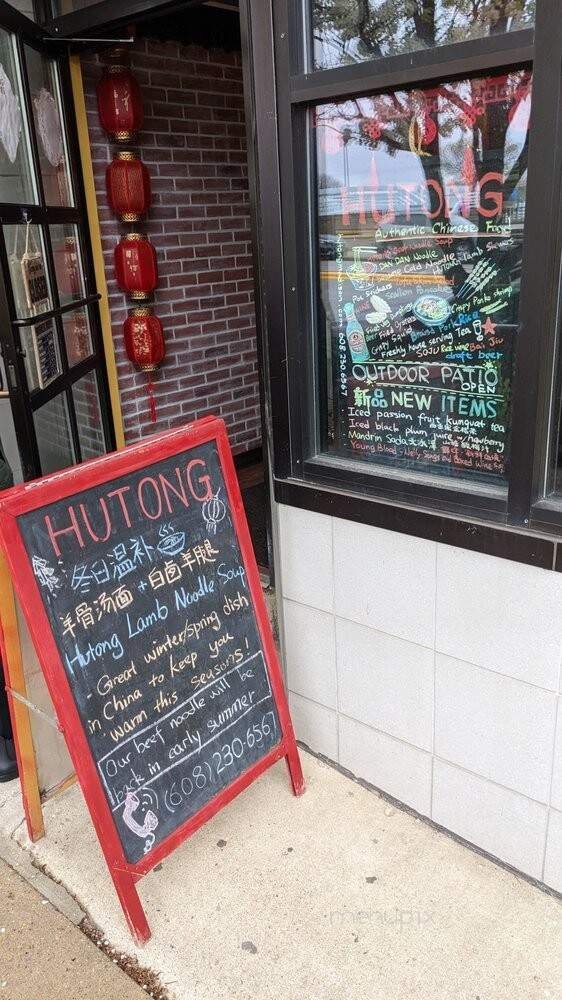 HUTONG
冬日温补
羊骨汤面+白卤羊腿
Hutong Lamb Noodle Soup
- Great winter/spring dish
in China to keep you
warm this seasons!
Our beef noodle will be
back in early summer
(608)230-6567
HUTONG
Authentic Chinese Food
Noodle Soup
DAN DAN Noodle
Cold Noodle
Lamb Skewers
Pot Stickers
Scallion Pancake
Crispy Potato string
Squid
Pork Rice
Freshly house serving Tea
SOJU Rice wine Bai Jiu
draft beer
608 230-6567
OUTDOOR PATIO
OPEN
新品 NEW ITEMS
Iced passion fruit kumquat tea
Iced black plum juice w/hawberry
Mandrin Soda
Young Blood
menupix